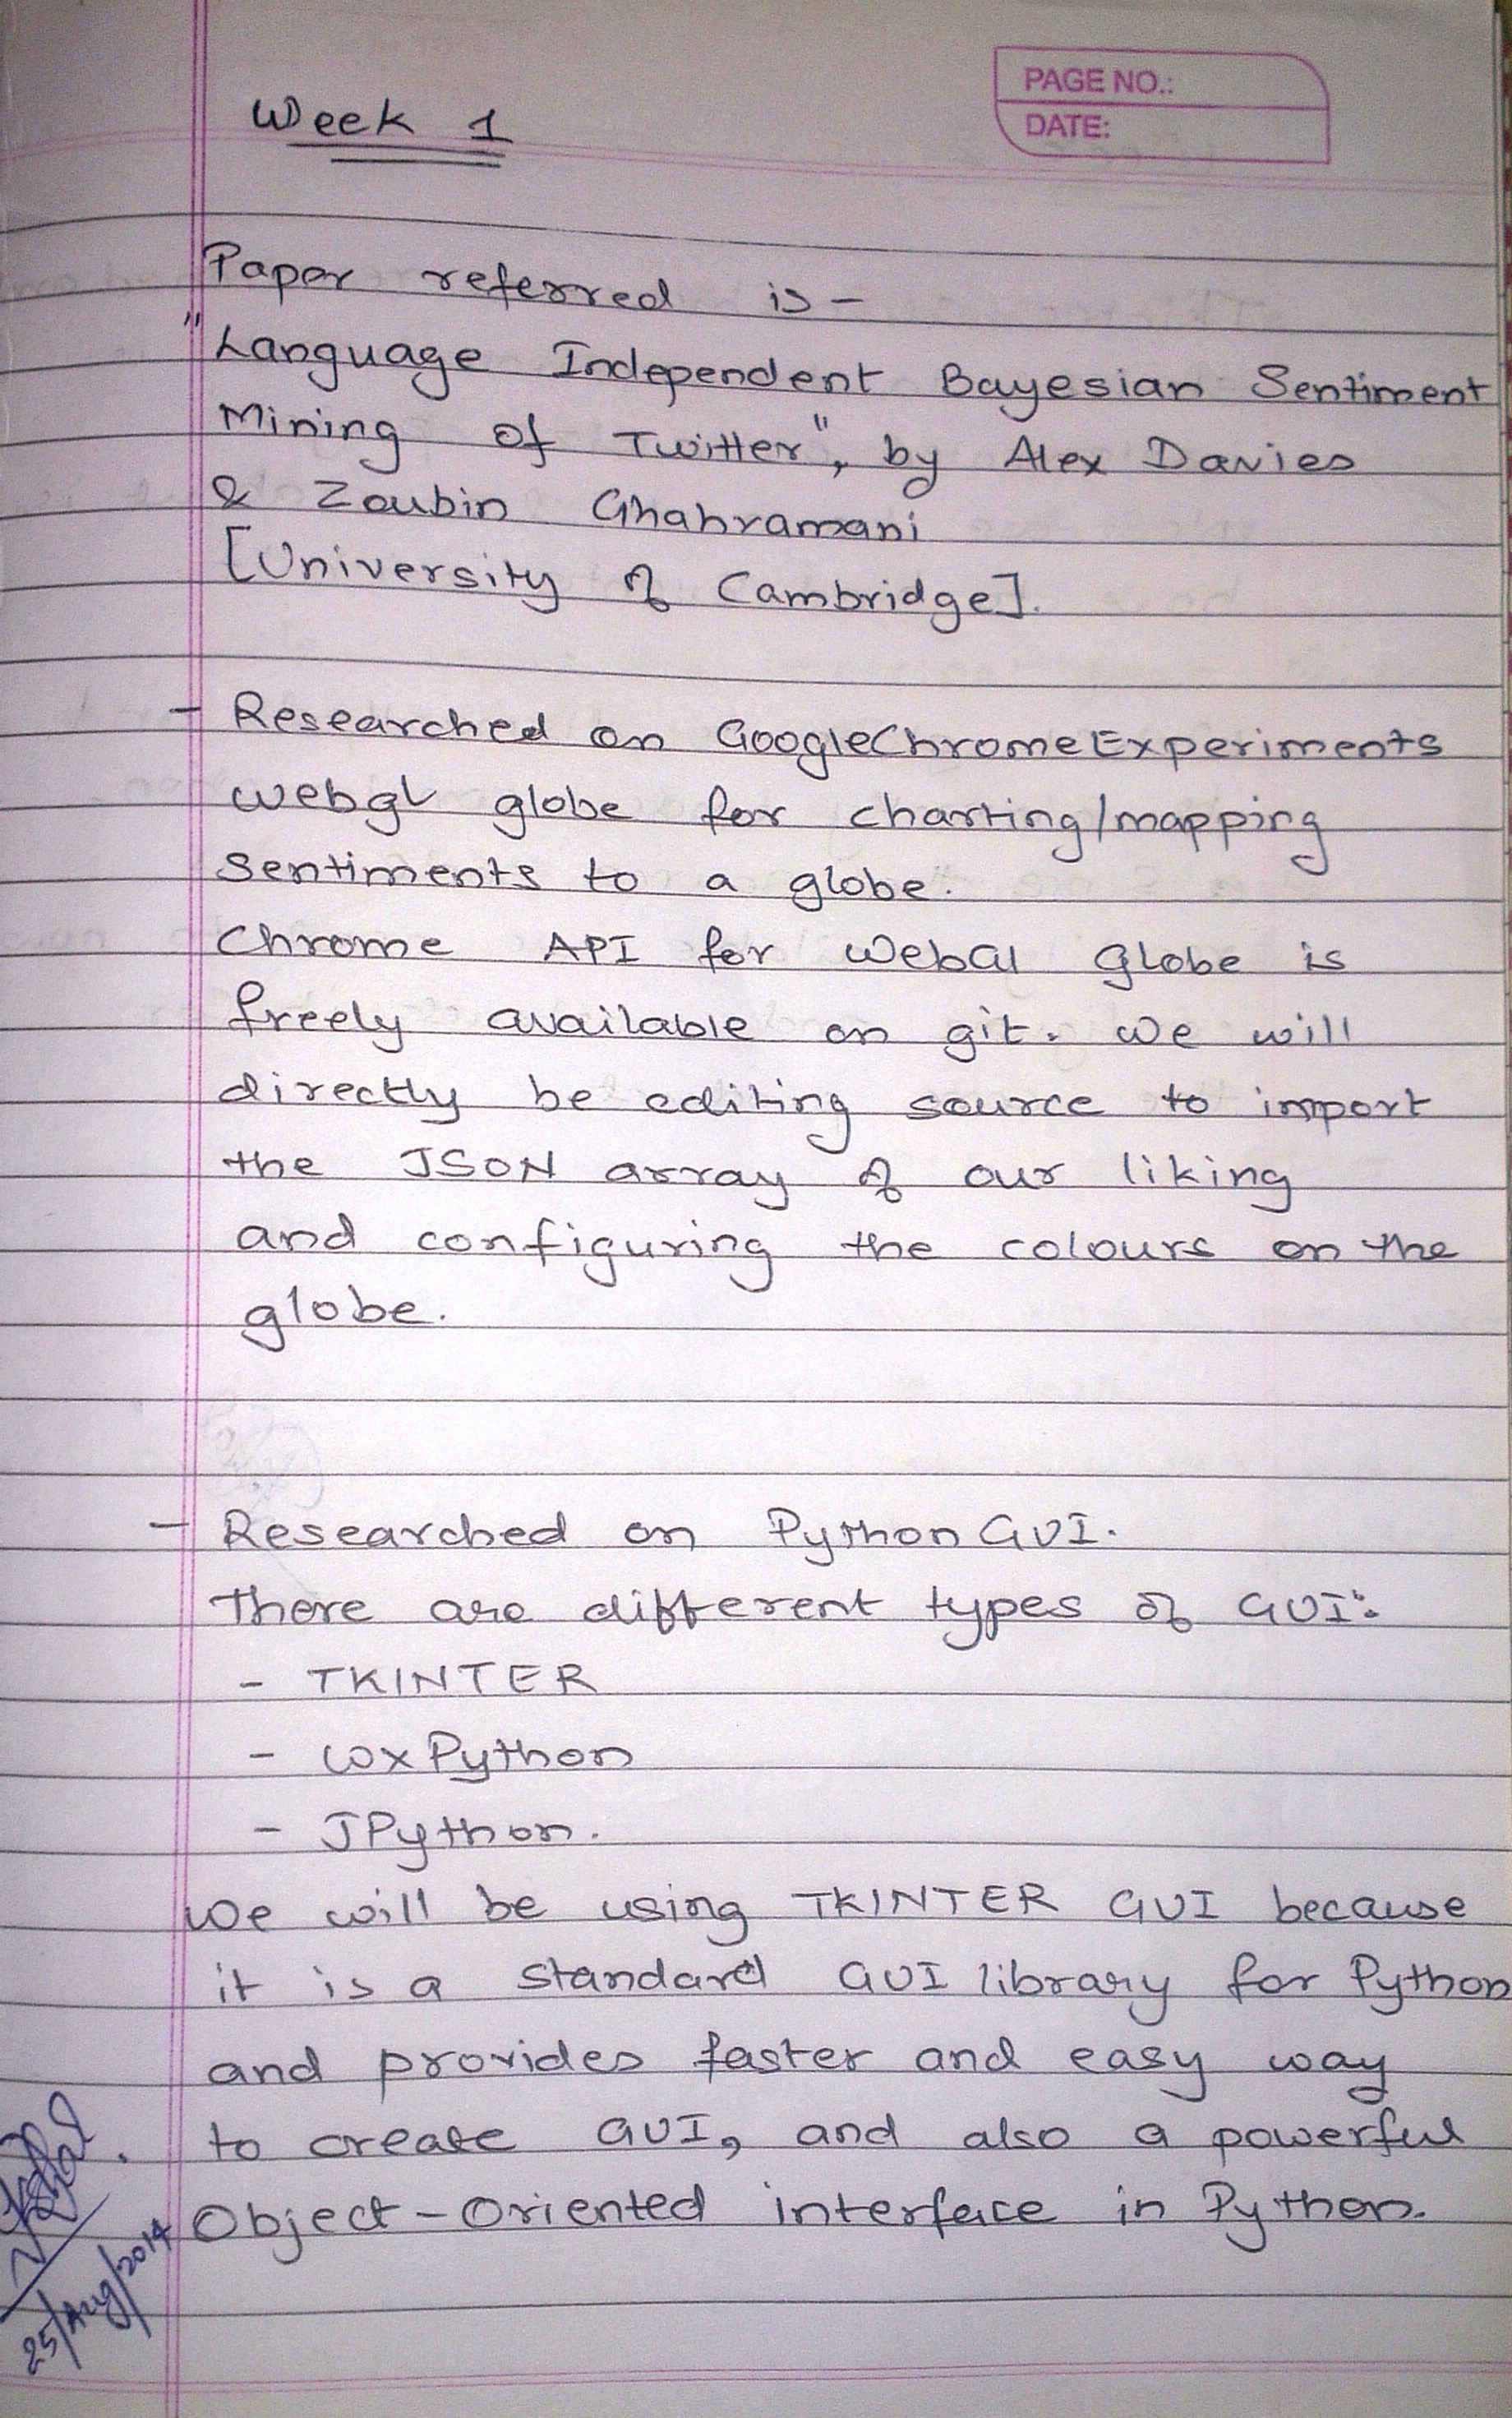 PAGE NO.:
DATE:
Week 1
Paper referred is -
"Language Independent Bayesian Sentiment
Mining of Twitter", by Alex Davies
& Zoubin Ghahramani
[University of Cambridge].
- Researched on GoogleChromeExperiments
webgl globe for charting/mapping
sentiments to a globe.
Chrome API for WebGl Globe is
freely available on git. We will
directly be editing source to import
the JSON array of our liking
and configuring the colours on the
globe.
- Researched on Python GUI.
There are different types of GUI:
- TKINTER
- wxPython
- JPython.
We will be using TKINTER GUI because
it is a standard GUI library for Python
and provides faster and easy way
to create GUI, and also a powerful
Object-Oriented interface in Python.
25/Aug/2014